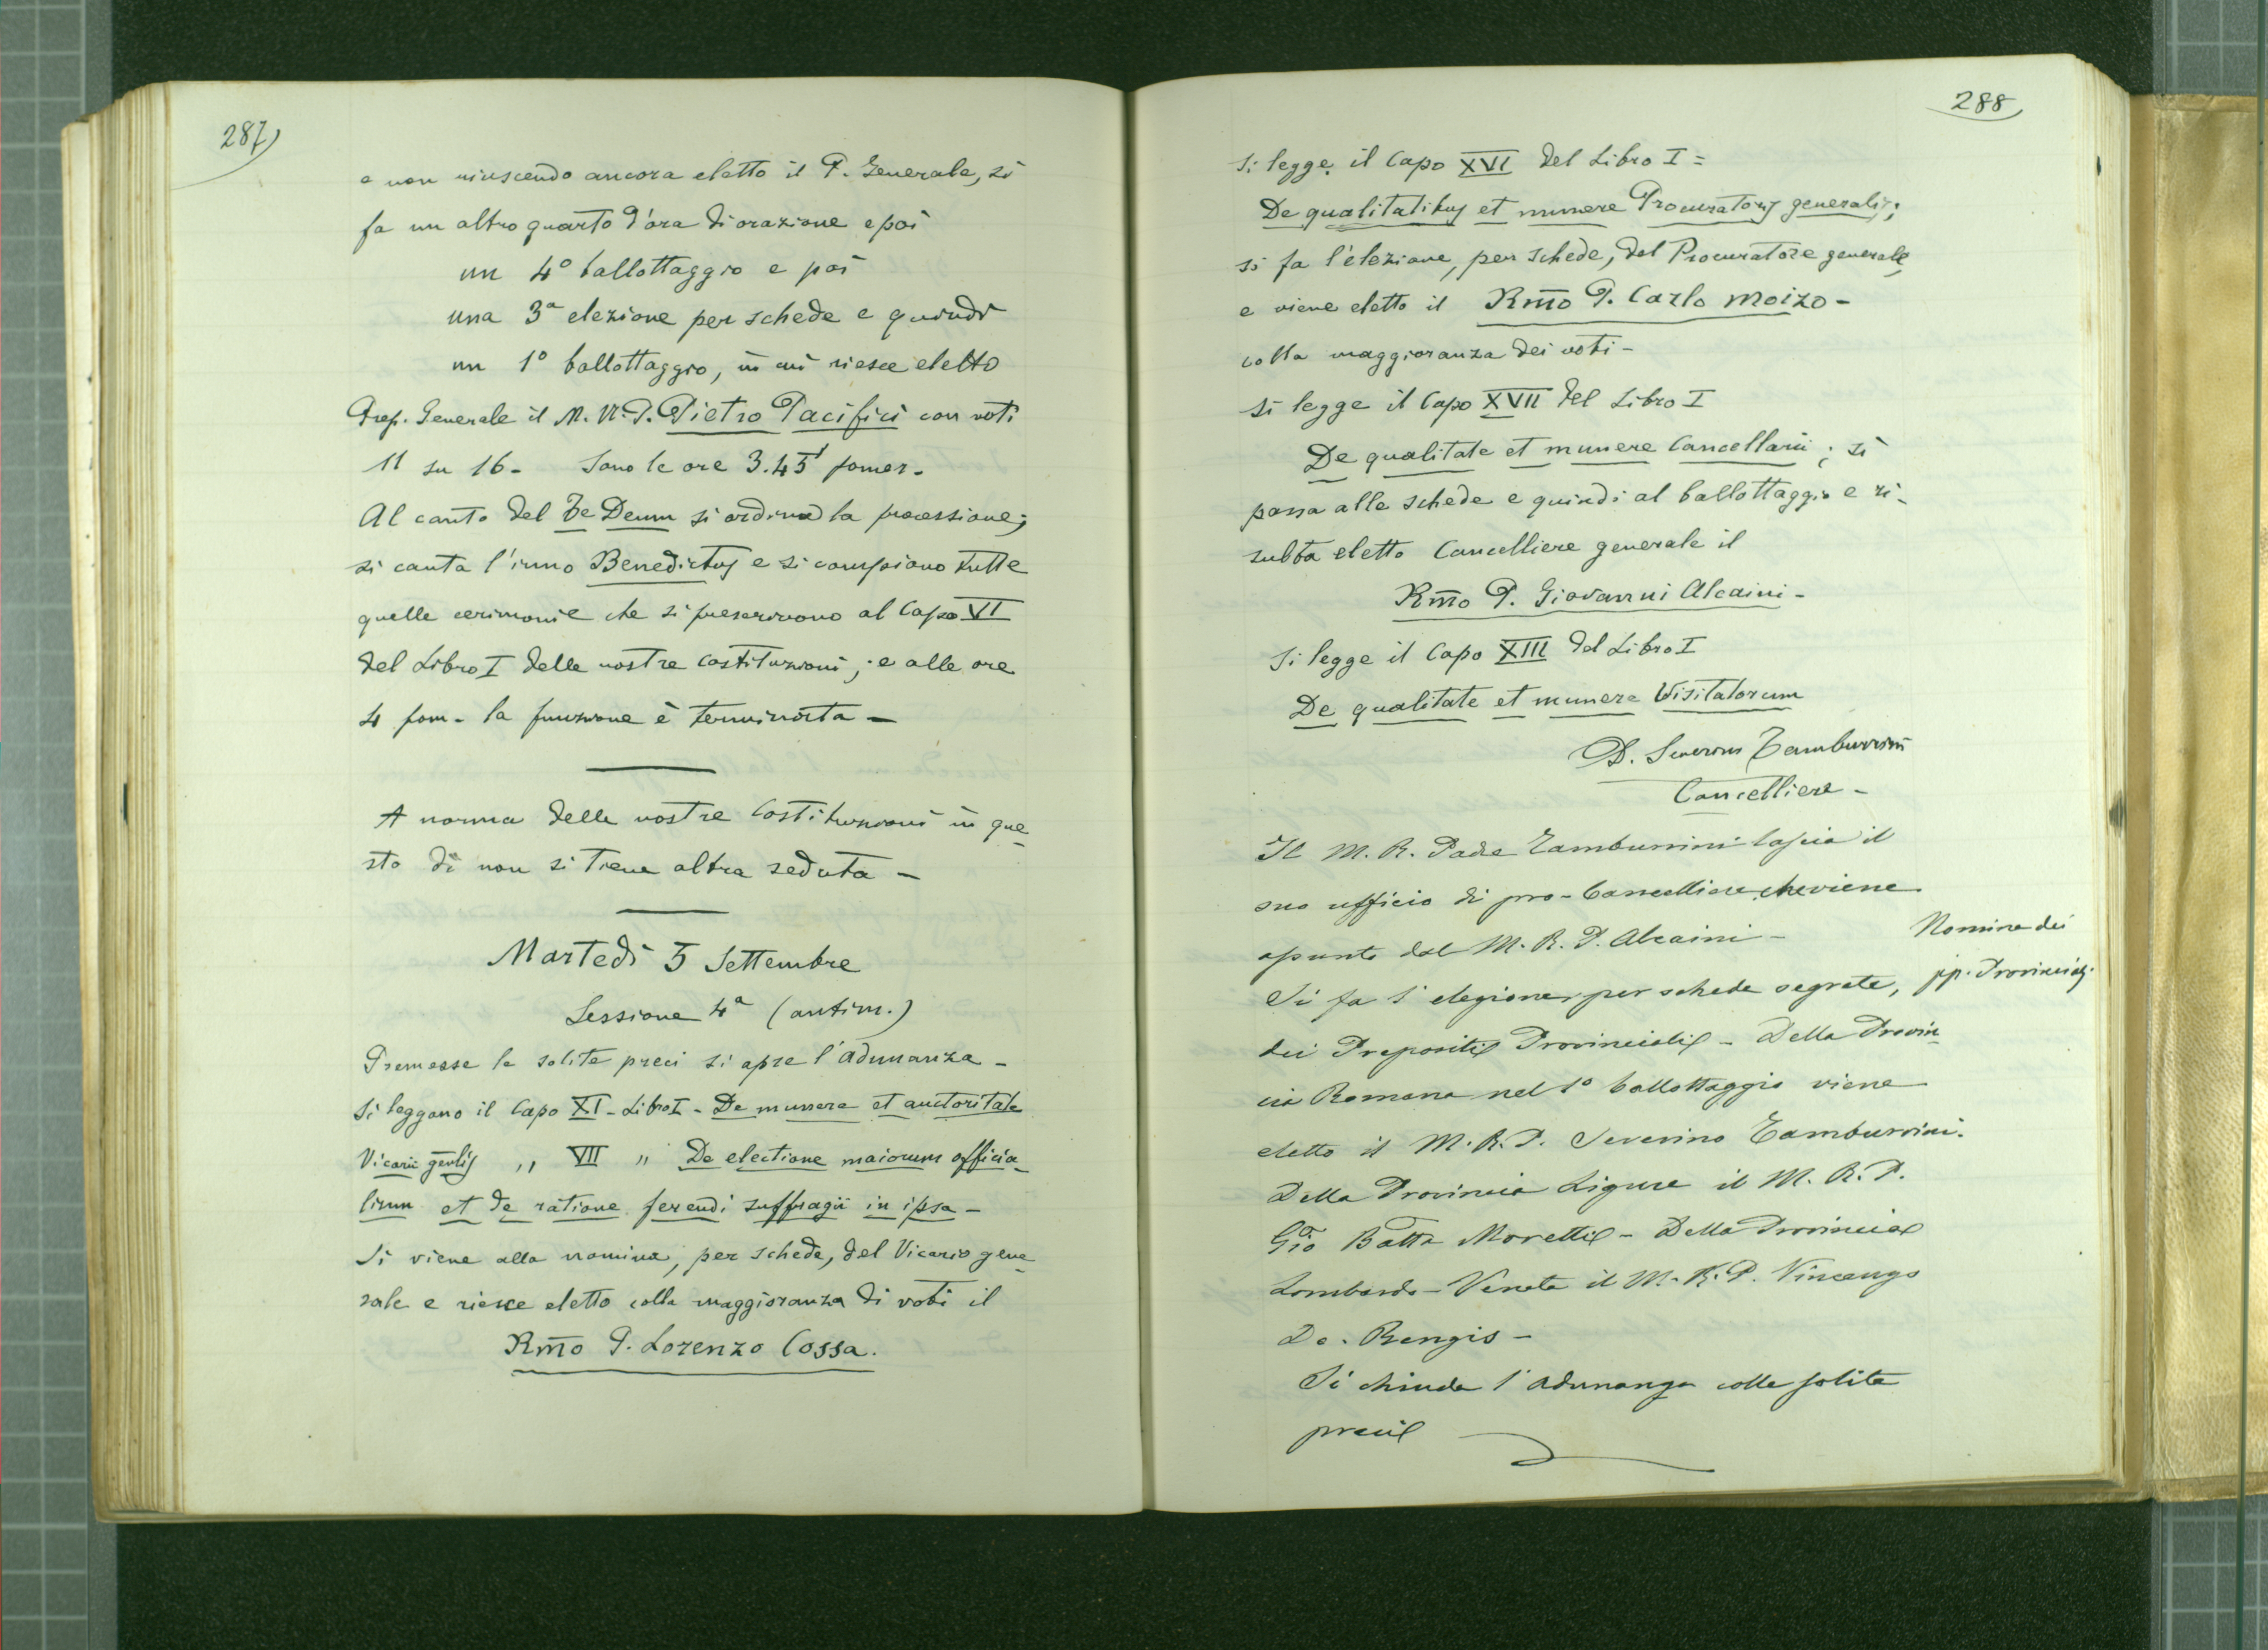 287)
e non riuscendo ancora eletto il P. Generale, si
fa un altro quarto d'ora di orazione e poi
un 4º ballottaggio e poi
una 3ª elezione per schede e quindi
un 1º ballottaggio, in cui riesce eletto
Prep. Generale il M. R. P. Pietro Pacifici con voti
11 su 16 - Sono le ore 3.45' pomer.
Al canto del Te Deum si ordina la processione;
si canta l'inno Benedictus e si compiono tutte
quelle cerimonie che si prescrivono al Capo VI
del Libro I delle nostre Costituzioni; e alle ore
4 pom. la funzione è terminata -
A norma delle nostre Costituzioni in que-
sto dì non si tiene altra seduta -
Martedì 5 Settembre
Sessione 4ª (antim.)
Premesse le solite preci si apre l'adunanza -
Si leggono il Capo XI - Libro I - De munere et auctoritate
Vicarii genlis " VII " De electione maiorum officia-
lium et de ratione ferendi suffragii in ipsa -
Si viene alla nomina, per schede, del Vicario gene-
rale e riesce eletto colla maggioranza di voti il
Rmo P. Lorenzo Cossa.
288
Si legge il Capo XVI del Libro I =
De qualitatibus et munere Procuratoris generalis;
si fa l'elezione, per schede, del Procuratore generale
e viene eletto il Rmo P. Carlo Moizo -
colla maggioranza dei voti -
Si legge il Capo XVII del Libro I
De qualitate et munere Cancellarii; si
passa alle schede e quindi al ballottaggio e ri-
sulta eletto Cancelliere generale il
Rmo P. Giovanni Alcaini -
Si legge il Capo XIII del Libro I
De qualitate et munere Visitatorum
D. Severino Tamburrini
Cancelliere -
Il M. R. Padre Tamburrini lascia il
suo ufficio di pro-Cancelliere, che viene
assunto dal M. R. P. Alcaini -
Nomina dei
pp. Provinciali.
Si fa l'elezione, per schede segrete,
dei Prepositi Provinciali - Della Provin-
cia Romana nel 1º ballottaggio viene
eletto il M. R. P. Severino Tamburrini.
Della Provincia Ligure il M. R. P.
Gio Batta Moretti - Della Provincia
Lombardo-Veneta il M. R. P. Vincenzo
De. Rengis -
Si chiude l'adunanza colle solite
preci